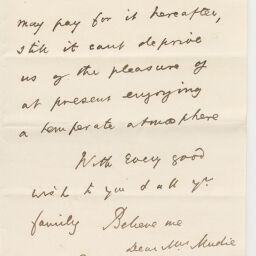 may pay for it hereafter,
still it cant deprive
us of the pleasure of
at present enjoying
a temperate atmosphere
With every good
wish to you & all yr
family Believe me
Dear Mrs Mudie